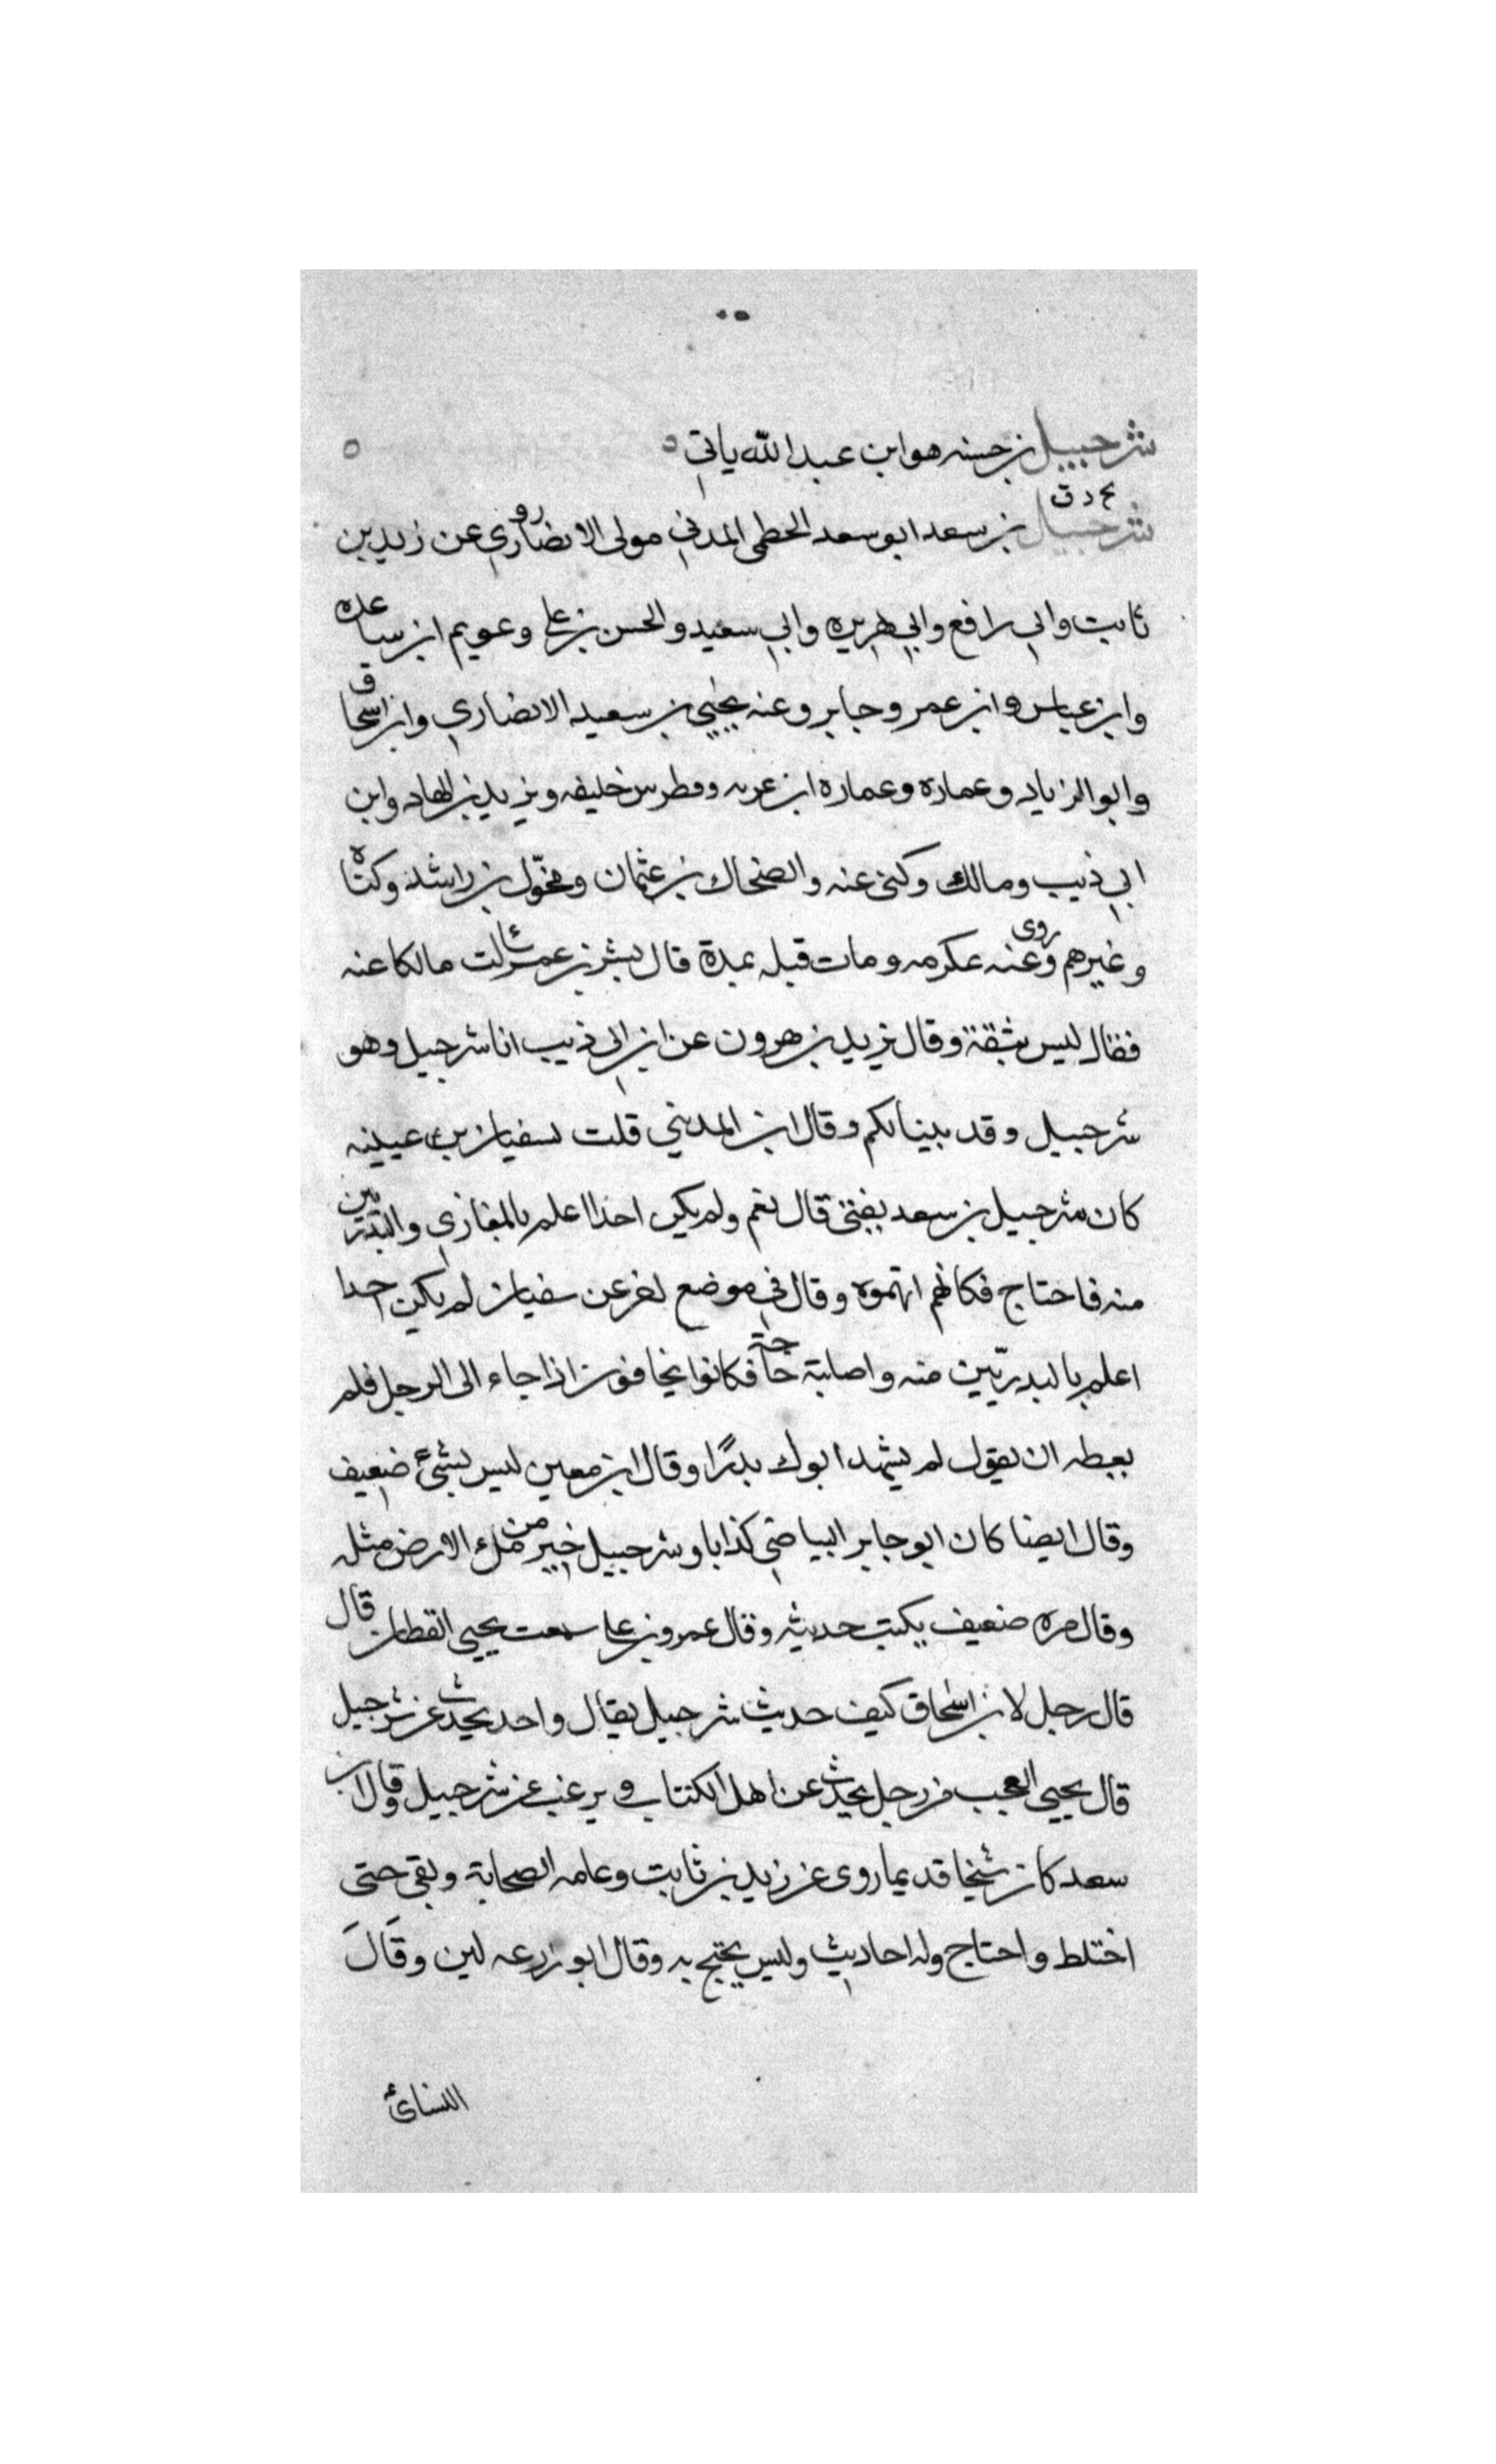 شرحبيل بن حسنه هو ابن عبد الله ياتي ٥ ٥
بخ د ق
شرحبيل بن سعد ابو سعد الخطمى المدني مولى الانصار روي عن زيد بن
ثابت وابى رافع وابي هريره وابي سعيد والحسن بن على وعويم ابن ساعده
وابن عباس وابن عمر وجابر وعنه يحيي بن سعيد الانصاري وابن اسحاق
وابو الزناد وعماره وعماره ابن عربه وفطر بن خليفه ويزيد بن الهاد وابن
ابي ذيب ومالك وكنى عنه والضحاك بن عثمان ومخوّل بن راشد وكتاه
وغيرهم وروى عنه عكرمه ومات قبله بمدة قال بشر بن عمر سالت مالكا عنه
فقال ليس بثقة وقال يزيد بن هرون عن ابن ابى ذيب انا شرحبيل وهو
شرحبيل وقد بينا لكم وقال ابن المديني قلت لسفيان بن عيينه
كان شرحبيل بن سعد يفتى قال نعم ولم يكن احدا اعلم بالمغازي والبدريين
منه فاحتاج فكانهم اتهموه وقال في موضع اخر عن سفيان لم يكن احدا
اعلم بالبدريّين منه واصابته حاجة فكانوا يخافون اذا جاء الى الرجل فلم
يعطه ان يقول لم يشهد ابوك بدرًا وقال ابن معين ليس بشئ ضعيف
وقال ايضا كان ابو جابر البياضي كذابا وشرحبيل خير من ملء الارض مثله
وقال مره ضعيف يكتب حديثه وقال عمرو بن على سمعت يحيى القطان قال
قال رجل لابن اسحاق كيف حديث شرحبيل فقال واحد يحدث عن شرحبيل
قال يحيى العجب من رجل يحدث عن اهل الكتاب ويرغب عن شرحبيل وقال ابن
سعد كان شيخا قديما روى عن زيد بن ثابت وعامه الصحابة وبقى حتى
اختلط واحتاج وله احاديث وليس يحتج به وقال ابو زرعه لين وقَالَ
النسائ